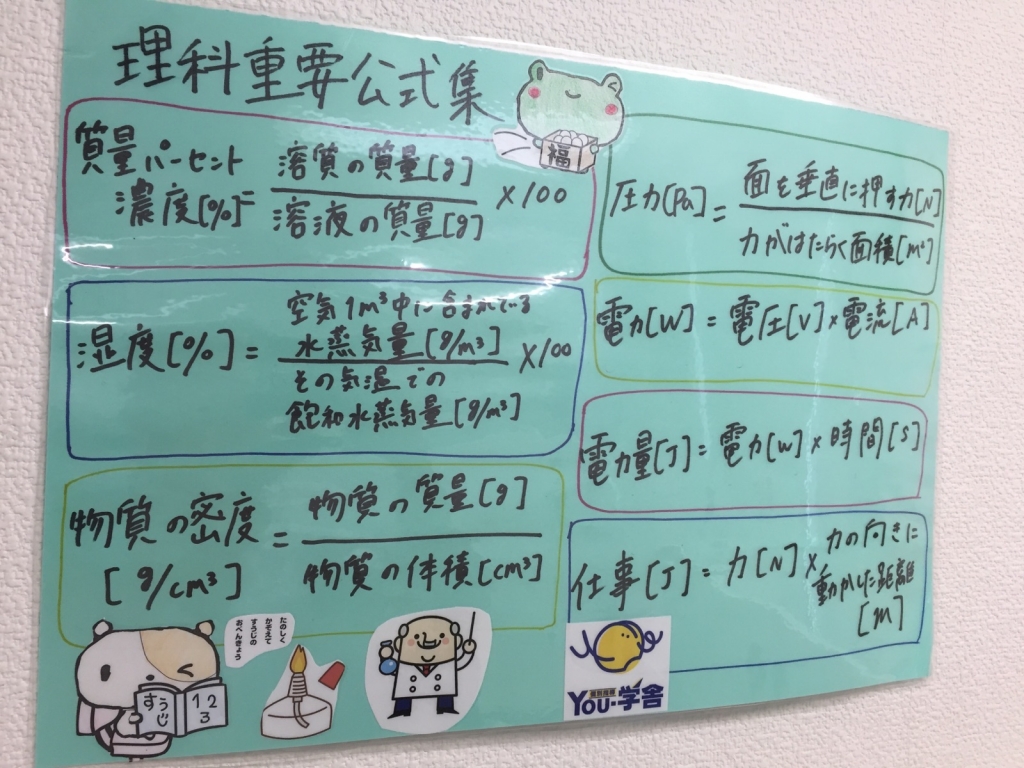 理科重要公式集
福
質量パーセント
濃度[%]=
溶質の質量[g]
溶液の質量[g]
×100
湿度[%]=
空気1m³中に含まれている
水蒸気量[g/m³]
その気温での
飽和水蒸気量[g/m³]
×100
物質の密度
[g/cm³]
=
物質の質量[g]
物質の体積[cm³]
圧力[Pa]=
面を垂直に押す力[N]
力がはたらく面積[m²]
電力[W]=電圧[V]×電流[A]
電力量[J]=電力[W]×時間[s]
仕事[J]=力[N]×
力の向きに
動かした距離
[m]
たのしく
かぞえて
すうじの
おべんきょう
すうじ
1 2
3
個別指導
YOU・学舎